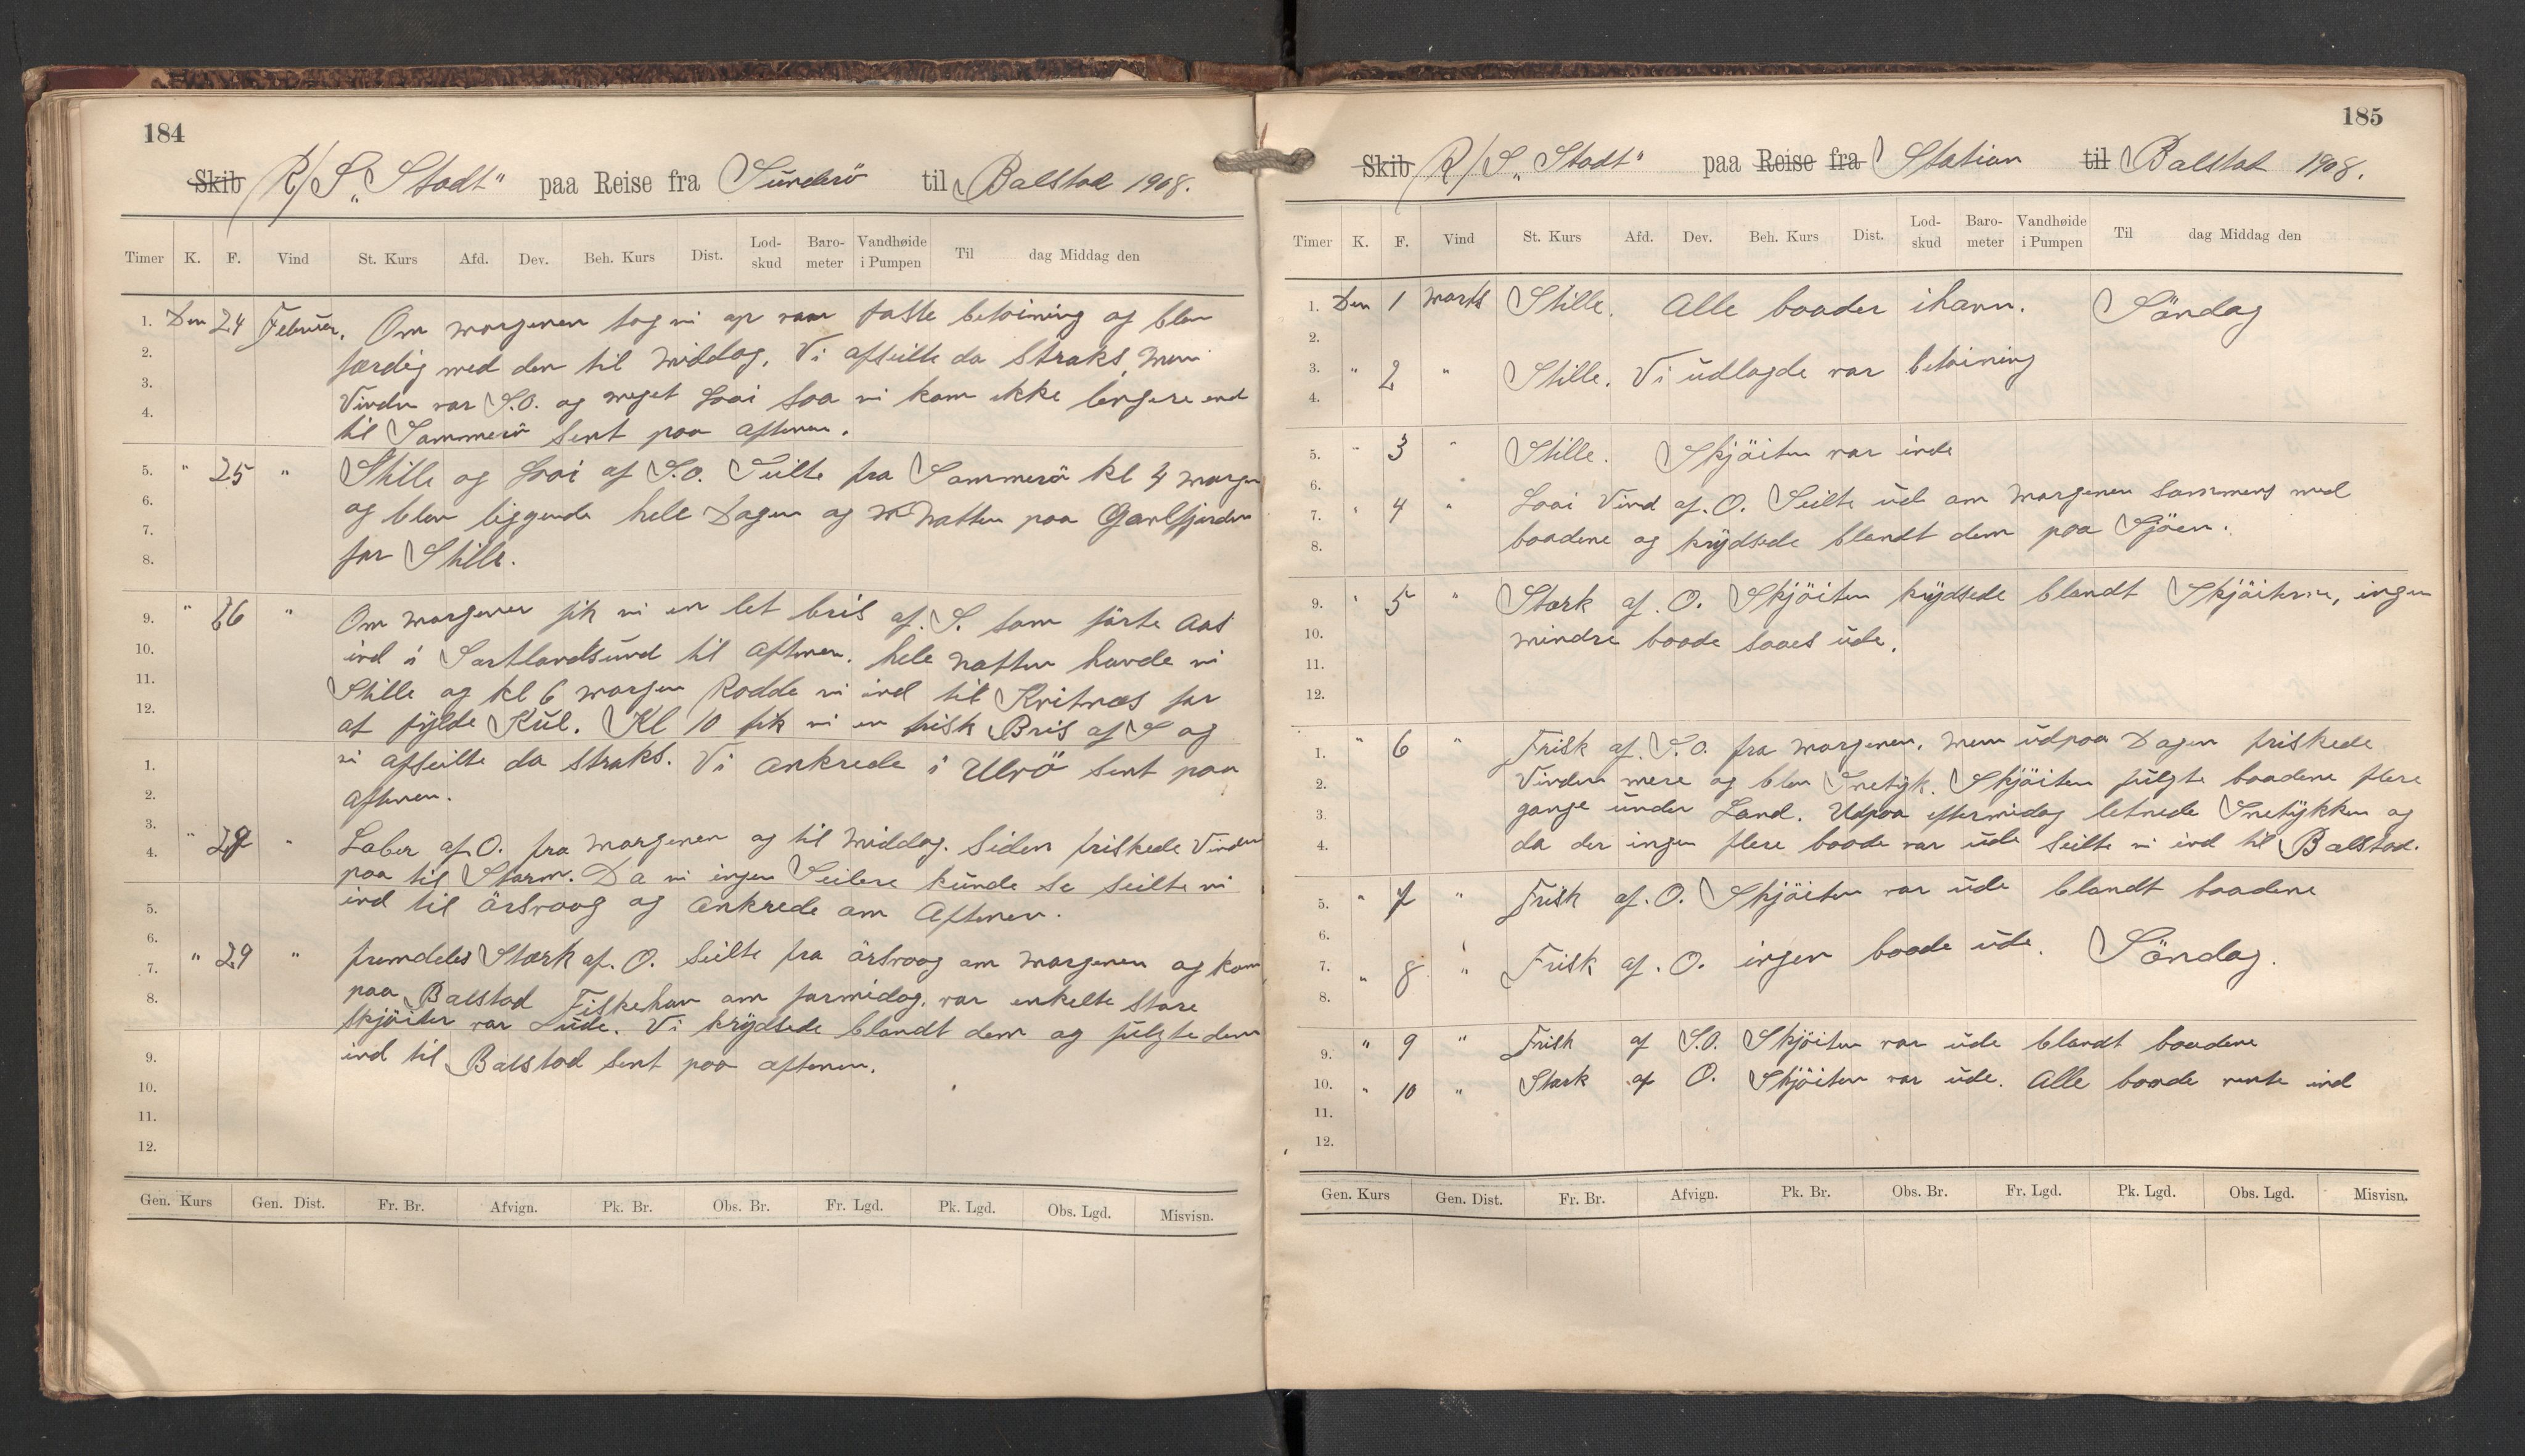 184
Skib R/S „Stadt" paa Reise fra Sunderö til Balstad 1908.
Timer K. F. Vind St. Kurs Afd. Dev. Beh. Kurs Dist. Lod-skud Baro-meter Vandhøide i Pumpen Til dag Middag den
1. Den 24 Februer. Om morgenen tog ni op faste betoining og blev
2. færdig med den til Middag. Vi afseilte da straks, men
3. Vinden var S.O. og meget Looi saa vi kom ikke lengere end
4. til Sommerö sent paa aftenen.
5. " 25 " Stille og Looi af S.O. Seilte fra Sommerö kl 4 morgen
6. og blev liggende hele Dagen og Natten paa Gavlfjorden
7. for Stille.
8.
9. " 26 " Om morgenen fik vi en let bris af. S. som förte oos
10. ind i Sortlandsund til aftenen. hele natten havde vi
11. Stille og kl 6 morgen Rodde vi ind til Kvitnæs for
12. at fylde Kul. Kl 10 fik vi en frisk Bris af S og
1. vi afseilte da straks. Vi ankrede i Ulvö sent paa
2. aftenen.
3. " 28 " Laber af. O. fra morgenen og til middag. Siden friskede Vinden
4. paa til Storm. Da vi ingen Seilere kunde se seilte vi
5. ind til örsvoog og ankrede om Aftenen.
6.
7. " 29 " fremdeles Stærk af. O. Seilte fra örsvoog om morgenen og kom
8. paa Balstad Fiskehav om formidag. var enkelte store
skjöiter var ude. Vi krydsede blandt dem og fulgte dem
9. ind til Balstad sent paa aftenen.
10.
11.
12.
Gen. Kurs Gen. Dist. Fr. Br. Afvign. Pk. Br. Obs. Br. Fr. Lgd. Pk. Lgd. Obs. Lgd. Misvisn.
185
Skib R/S „Stadt" paa Reise fra Station til Balstad 1908.
Timer K. F. Vind St. Kurs Afd. Dev. Beh. Kurs Dist. Lod-skud Baro-meter Vandhøide i Pumpen Til dag Middag den
1. Den 1 Marts Stille. Alle baader ihavn. Söndag
2.
3. " 2 " Stille. Vi udlagde vor betoining
4.
5. " 3 " Stille. Skjöiten var inde
6.
7. " 4 " Looi Vind af. O. Seilte ud om Morgenen sammens med
8. baadene og krydsede blandt dem paa Sjöen.
9. " 5 " Stærk af. O. Skjöiten krydsede blandt Skjöiterne, ingen
10. mindre baade saaes ude.
11.
12.
1. " 6 " Frisk af. S.O. fra morgenen. men udpaa Dagen friskede
2. Vinden mere og blev Snetyk. Skjöiten fulgte baadene flere
3. gange under Land. Udpaa eftermidag letnede Snetykken og
4. da der ingen flere baade var ude seilte vi ind til Balstad.
5. " 7 " Frisk af. O. Skjöiten var ude blandt baadene
6.
7. " 8 " Frisk af. O. ingen baade ude. Söndag.
8.
9. " 9 " Frisk af S.O. Skjöiten var ude blandt baadene
10. " 10 " Stærk af O. Skjöiten var ude. Alle baade vente ind
11.
12.
Gen. Kurs Gen. Dist. Fr. Br. Afvign. Pk. Br. Obs. Br. Fr. Lgd. Pk. Lgd. Obs. Lgd. Misvisn.